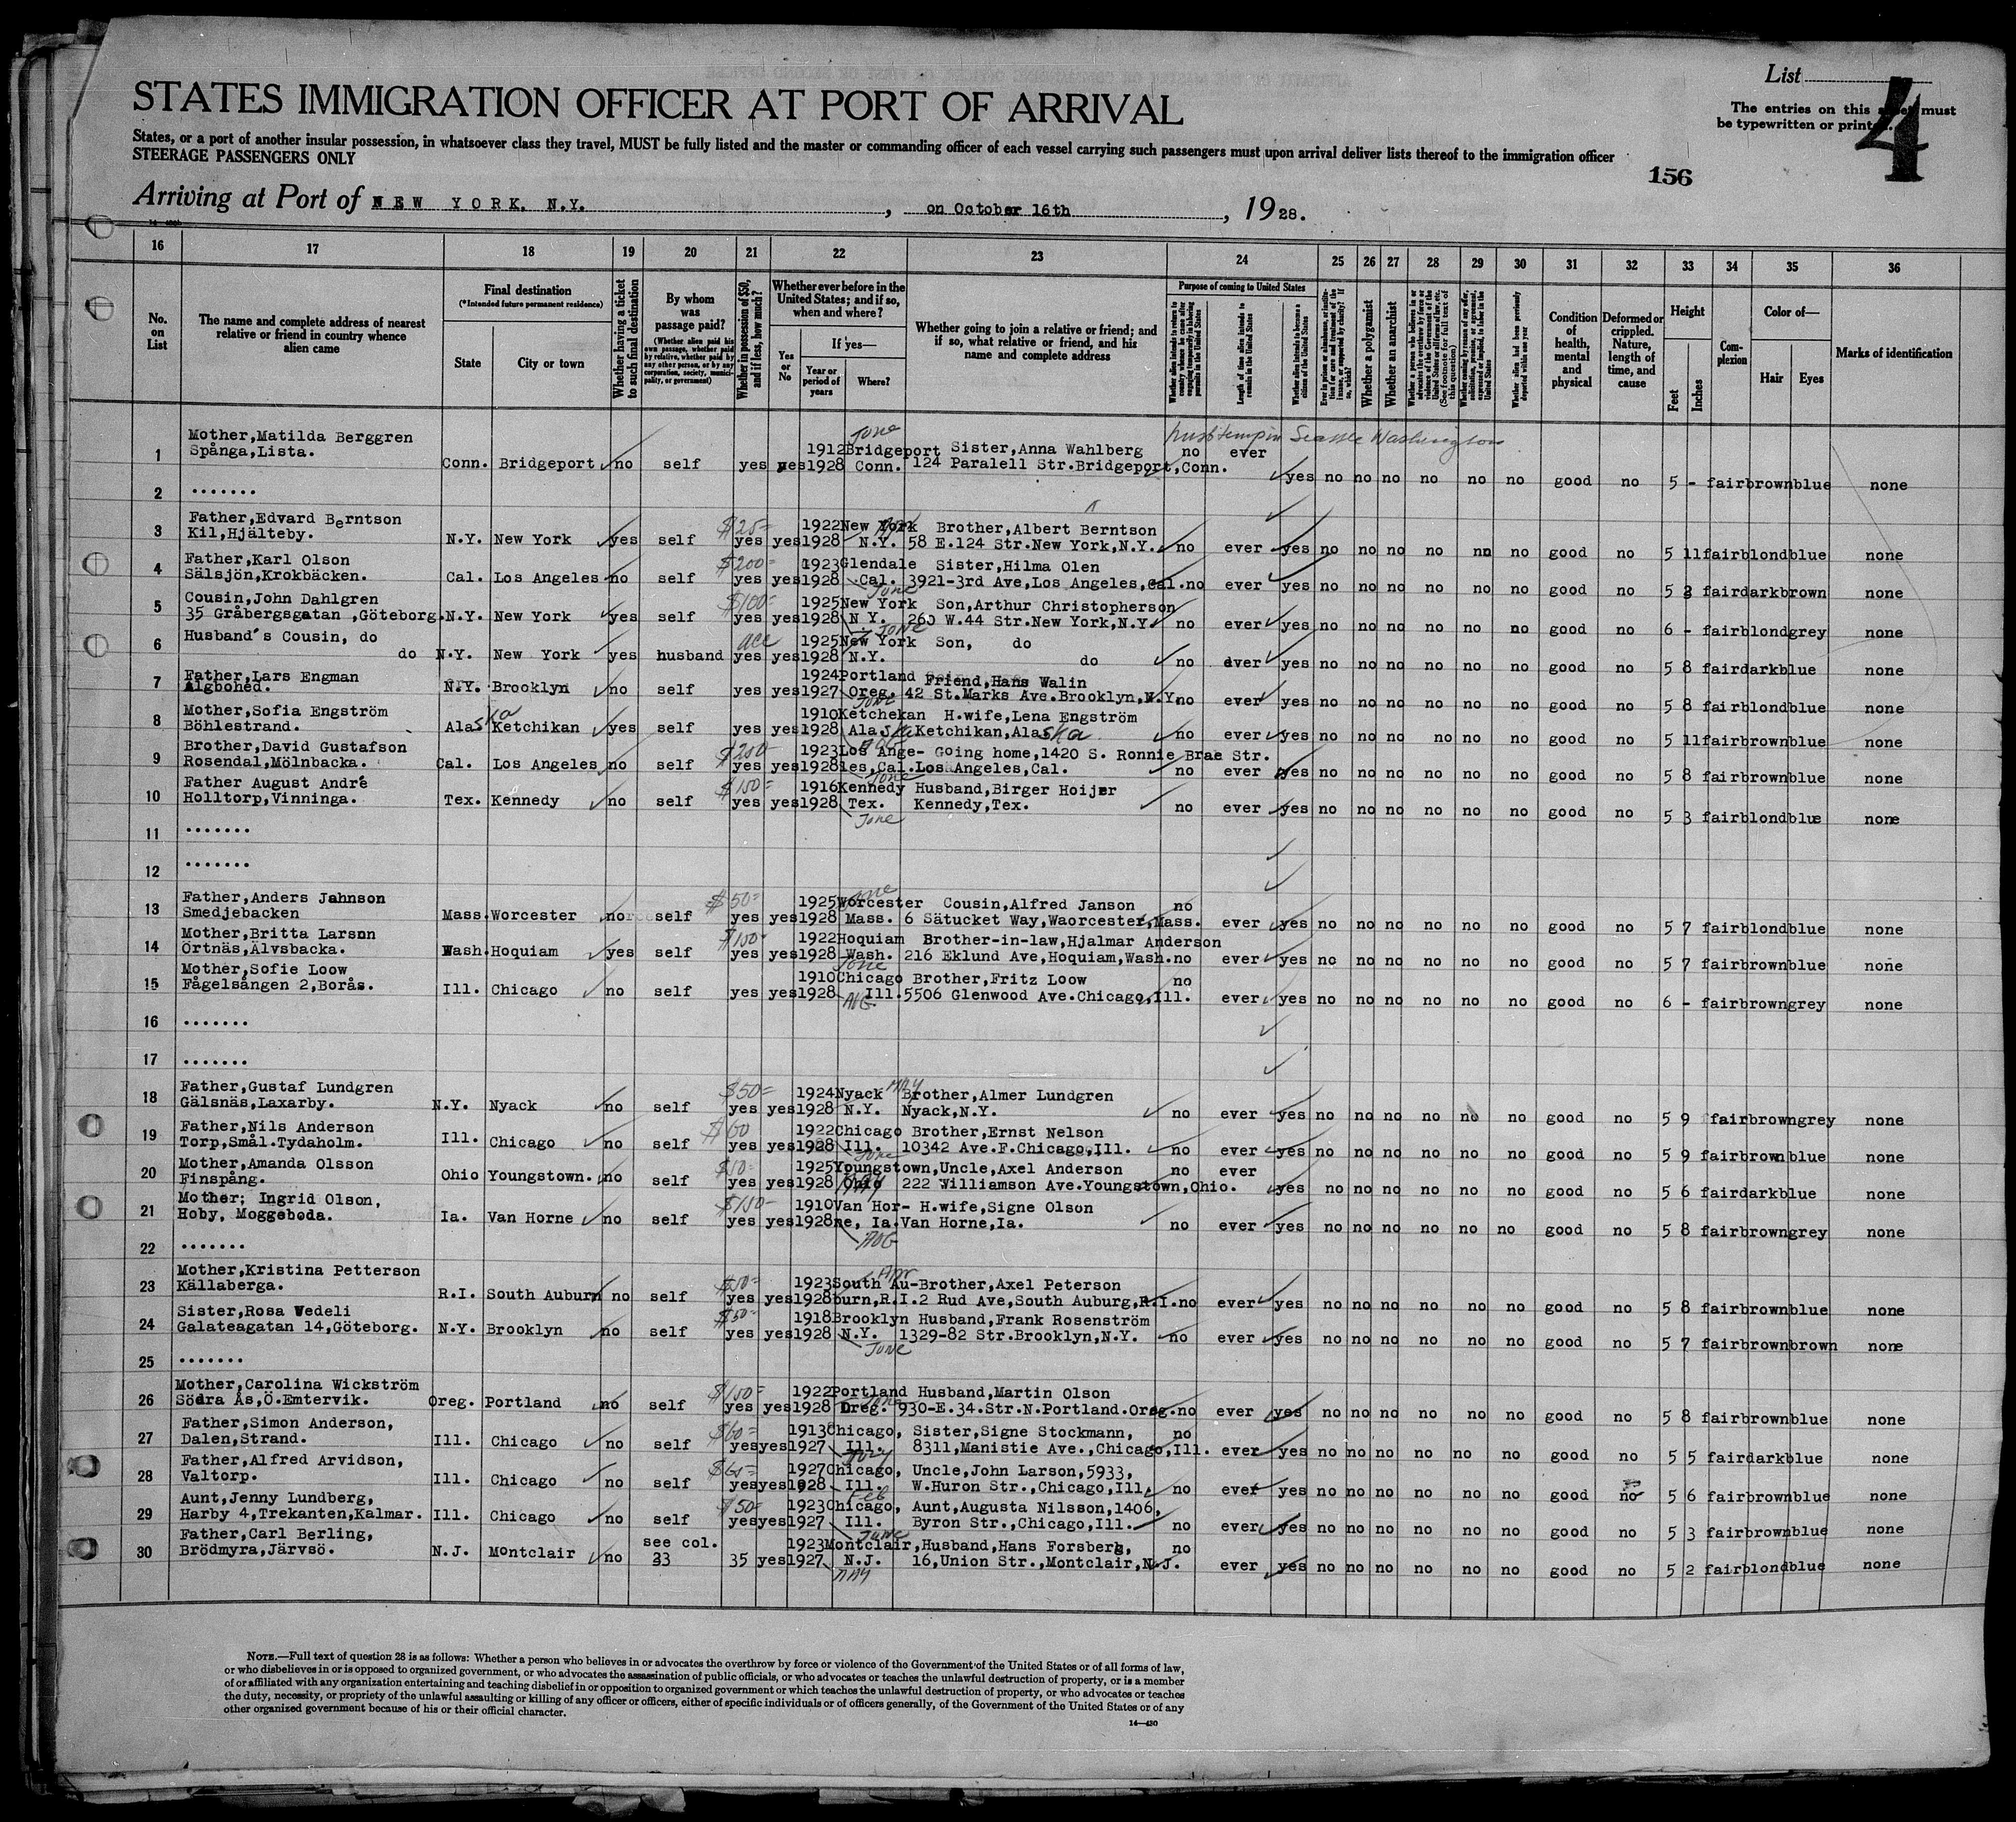 List
4
The entries on this sheet must
be typewritten or printed.
STATES IMMIGRATION OFFICER AT PORT OF ARRIVAL
States, or a port of another insular possession, in whatsoever class they travel, MUST be fully listed and the master or commanding officer of each vessel carrying such passengers must upon arrival deliver lists thereof to the immigration officer
STEERAGE PASSENGERS ONLY
156
Arriving at Port of NEW YORK, N.Y. , on October 16th , 1928.
16 17 18 19 20 21 22 23 24 25 26 27 28 29 30 31 32 33 34 35 36
No. on List
The name and complete address of nearest relative or friend in country whence alien came
Final destination
(*Intended future permanent residence)
State
City or town
Whether having a ticket to such final destination
By whom was passage paid?
(Whether alien paid his own passage, whether paid by relative, whether paid by any other person, or by any corporation, society, municipality, or government)
Whether in possession of $50, and if less, how much?
Whether ever before in the United States; and if so, when and where?
Yes or No
If yes—
Year or period of years
Where?
Whether going to join a relative or friend; and if so, what relative or friend, and his name and complete address
Purpose of coming to United States
Whether alien intends to return to country whence he came after engaging temporarily in laboring pursuits in the United States
Length of time alien intends to remain in the United States
Whether alien intends to become a citizen of the United States
Whether a polygamist
Whether an anarchist
Whether alien had been previously deported within one year
Condition of health, mental and physical
Deformed or crippled. Nature, length of time, and cause
Height
Feet
Inches
Complexion
Color of—
Hair
Eyes
Marks of identification
1 Mother,Matilda Berggren 1912 Bridgeport Sister,Anna Wahlberg no ever Seattle Washington
Spånga,Lista. Conn. Bridgeport no self yes yes 1928 Conn. 124 Paralell Str.Bridgeport,Conn. yes no no no no no no good no 5 - fair brown blue none
2 .......
3 Father,Edvard Berntson $25= 1922 New York Brother,Albert Berntson
Kil,Hjälteby. N.Y. New York yes self yes yes 1928 N.Y. 58 E.124 Str.New York,N.Y. no ever yes no no no no no no good no 5 11 fair blond blue none
4 Father,Karl Olson $200= 1923 Glendale Sister,Hilma Olen
Sälsjön,Krokbäcken. Cal. Los Angeles no self yes yes 1928 Cal. 3921-3rd Ave,Los Angeles,Cal. no ever yes no no no no no no good no 5 fair dark brown none
5 Cousin,John Dahlgren June $100= 1925 New York Son,Arthur Christopherson
35 Gråbergsgatan ,Göteborg. N.Y. New York yes self yes yes 1928 N Y. 260 W.44 Str.New York,N.Y. no ever yes no no no no no no good no 6 - fair blond grey none
6 Husband's Cousin, do June 1925 New York Son, do
do N.Y. New York yes husband yes yes 1928 N.Y. do no ever yes no no no no no no good no 5 8 fair dark blue none
7 Father,Lars Engman 1924 Portland Friend,Hans Walin
Älgbohed. N.Y. Brooklyn no self yes yes 1927 Oreg. 42 St.Marks Ave.Brooklyn,N.Y. no ever yes no no no no no no good no 5 8 fair blond blue none
8 Mother,Sofia Engström June 1910 Ketchekan H.wife,Lena Engström
Böhlestrand. Alaska Ketchikan yes self yes yes 1928 Alaska Ketchikan,Alaska no ever yes no no no no no no good no 5 11 fair brown blue none
9 Brother,David Gustafson $200 1923 Los Ange- Going home,1420 S. Ronnie Brae Str.
Rosendal,Mölnbacka. Cal. Los Angeles no self yes yes 1928 les,Cal. Los Angeles,Cal. no ever yes no no no no no no good no 5 8 fair brown blue none
10 Father August André June $150= 1916 Kennedy Husband,Birger Hoijer
Holltorp,Vinninga. Tex. Kennedy no self yes yes 1928 Tex. Kennedy,Tex. no ever yes no no no no no no good no 5 3 fair blond blue none
June
11 .......
12 .......
13 Father,Anders Jahnson $50= June 1925 Worcester Cousin,Alfred Janson no
Smedjebacken Mass. Worcester no self yes yes 1928 Mass. 6 Sätucket Way,Waorcester,Mass. ever yes no no no no no no good no 5 7 fair blond blue none
14 Mother,Britta Larson $150- 1922 Hoquiam Brother-in-law,Hjalmar Anderson
Örtnäs,Älvsbacka. Wash. Hoquiam yes self yes yes 1928 Wash. 216 Eklund Ave,Hoquiam,Wash. no ever yes no no no no no no good no 5 7 fair brown blue none
15 Mother,Sofie Loow June 1910 Chicago Brother,Fritz Loow no
Fågelsången 2,Borås. Ill. Chicago no self yes yes 1928 Ill. 5506 Glenwood Ave.Chicago,Ill. ever yes no no no no no no good no 6 - fair brown grey none
AUG.
16 .......
17 .......
18 Father,Gustaf Lundgren $50= MAY 1924 Nyack Brother,Almer Lundgren
Gälsnäs,Laxarby. N.Y. Nyack no self yes yes 1928 N.Y. Nyack,N.Y. no ever yes no no no no no no good no 5 9 fair brown grey none
19 Father,Nils Anderson $60 1922 Chicago Brother,Ernst Nelson
Torp,Smål.Tydaholm. Ill. Chicago no self yes yes 1928 Ill. 10342 Ave.F.Chicago,Ill. no ever yes no no no no no no good no 5 9 fair brown blue none
20 Mother,Amanda Olsson June $50- 1925 Youngstown,Uncle,Axel Anderson no ever
Finspång. Ohio Youngstown. no self yes yes 1928 Ohio 222 Williamson Ave.Youngstown,Ohio. yes no no no no no no good no 5 6 fair dark blue none
21 Mother; Ingrid Olson, $150- 1910 Van Hor- H.wife,Signe Olson
Hoby, Moggeboda. Ia. Van Horne no self yes yes 1928 ne, Ia. Van Horne,Ia. no ever yes no no no no no no good no 5 8 fair brown grey none
AUG
22 .......
23 Mother,Kristina Petterson $50= Apr 1923 South Au- Brother,Axel Peterson
Källaberga. R.I. South Auburn no self yes yes 1928 burn,R.I. 2 Rud Ave,South Auburg,R.I. no ever yes no no no no no no good no 5 8 fair brown blue none
24 Sister,Rosa Wedeli $50= 1918 Brooklyn Husband,Frank Rosenström
Galateagatan 14,Göteborg. N.Y. Brooklyn no self yes yes 1928 N.Y. 1329-82 Str.Brooklyn,N.Y. no ever yes no no no no no no good no 5 7 fair brown brown none
June
25 .......
26 Mother,Carolina Wickström $150= 1922 Portland Husband,Martin Olson
Södra Ås,Ö.Emtervik. Oreg. Portland no self yes yes 1928 Oreg. 930-E.34.Str.N.Portland.Oreg. no ever yes no no no no no no good no 5 8 fair brown blue none
27 Father,Simon Anderson, $60= 1913 Chicago, Sister,Signe Stockmann, no
Dalen,Strand. Ill. Chicago no self yes yes 1927 Ill. 8311,Manistie Ave.,Chicago,Ill. ever yes no no no no no no good no 5 5 fair dark blue none
28 Father,Alfred Arvidson, $65= 1927 Chicago, Uncle,John Larson,5933,
Valtorp. Ill. Chicago no self yes yes 1928 Ill. W.Huron Str.,Chicago,Ill. no ever yes no no no no no no good no 5 6 fair brown blue none
29 Aunt,Jenny Lundberg, Feb $50- 1923 Chicago, Aunt,Augusta Nilsson,1406,
Harby 4,Trekanten,Kalmar. Ill. Chicago no self yes yes 1927 Ill. Byron Str.,Chicago,Ill. no ever yes no no no no no no good no 5 3 fair brown blue none
30 Father,Carl Berling, see col. June 1923 Montclair,Husband,Hans Forsberg, no
Brödmyra,Järvsö. N.J. Montclair no 23 35 yes 1927 N.J. 16,Union Str.,Montclair,N.J. ever yes no no no no no no good no 5 2 fair blond blue none
MAY
NOTE.—Full text of question 28 is as follows: Whether a person who believes in or advocates the overthrow by force or violence of the Government of the United States or of all forms of law,
or who disbelieves in or is opposed to organized government, or who advocates the assassination of public officials, or who advocates or teaches the unlawful destruction of property, or is a member
of or affiliated with any organization entertaining and teaching disbelief in or opposition to organized government or which teaches the unlawful destruction of property, or who advocates or teaches
the duty, necessity, or propriety of the unlawful assaulting or killing of any officer or officers, either of specific individuals or of officers generally, of the Government of the United States or of any
other organized government because of his or their official character.
14—430